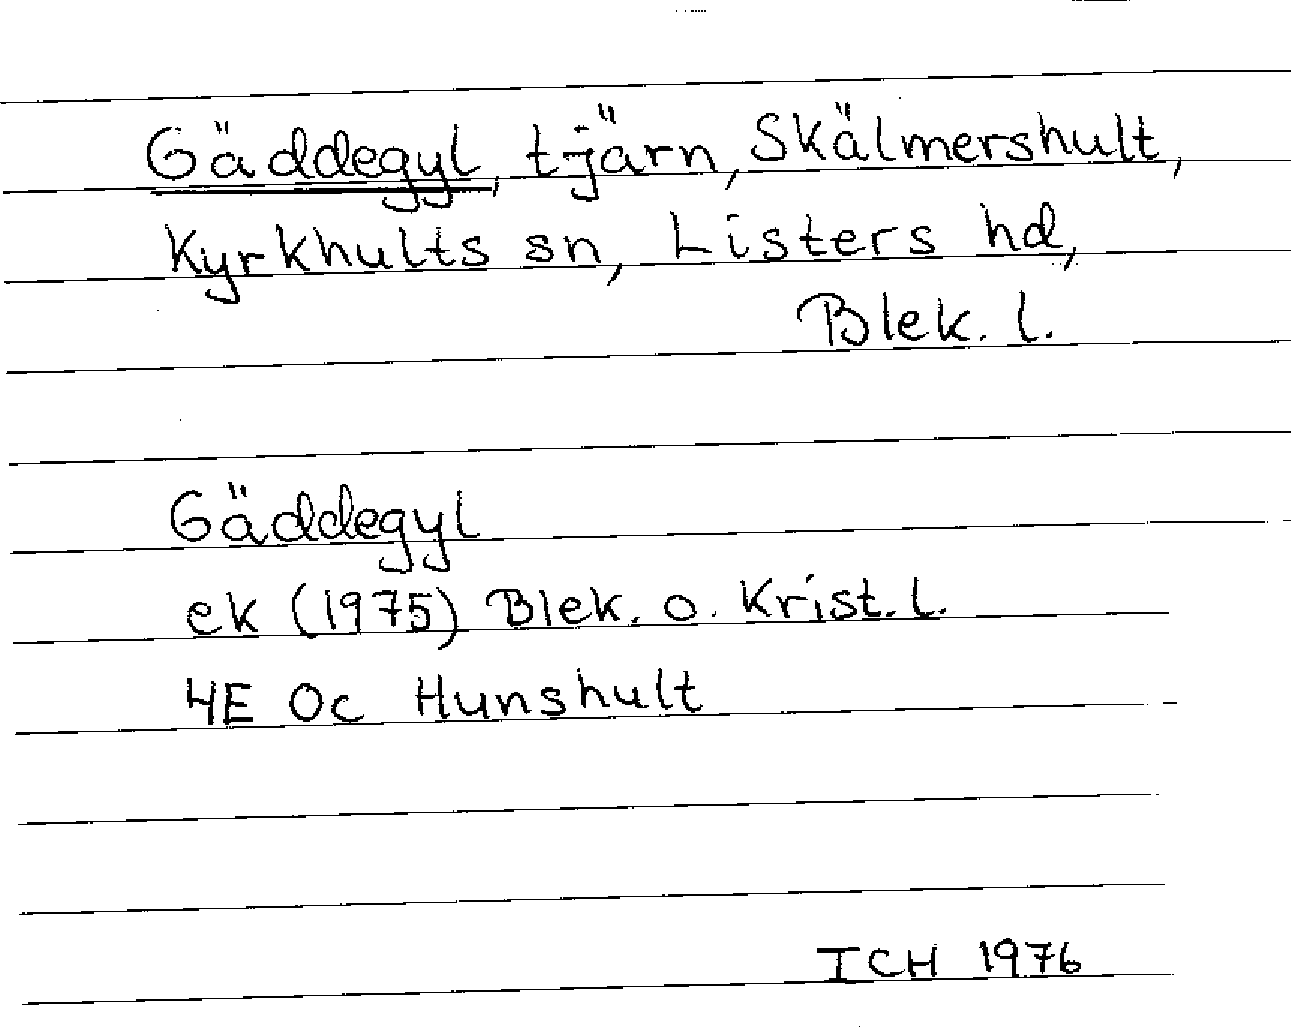 Gäddegyl, tjärn, Skälmershult,
Kyrkhults sn, Listers hd,
Blek. l.
Gäddegyl
ek (1975) Blek. o. Krist. l.
4E Oc Hunshult
ICH 1976